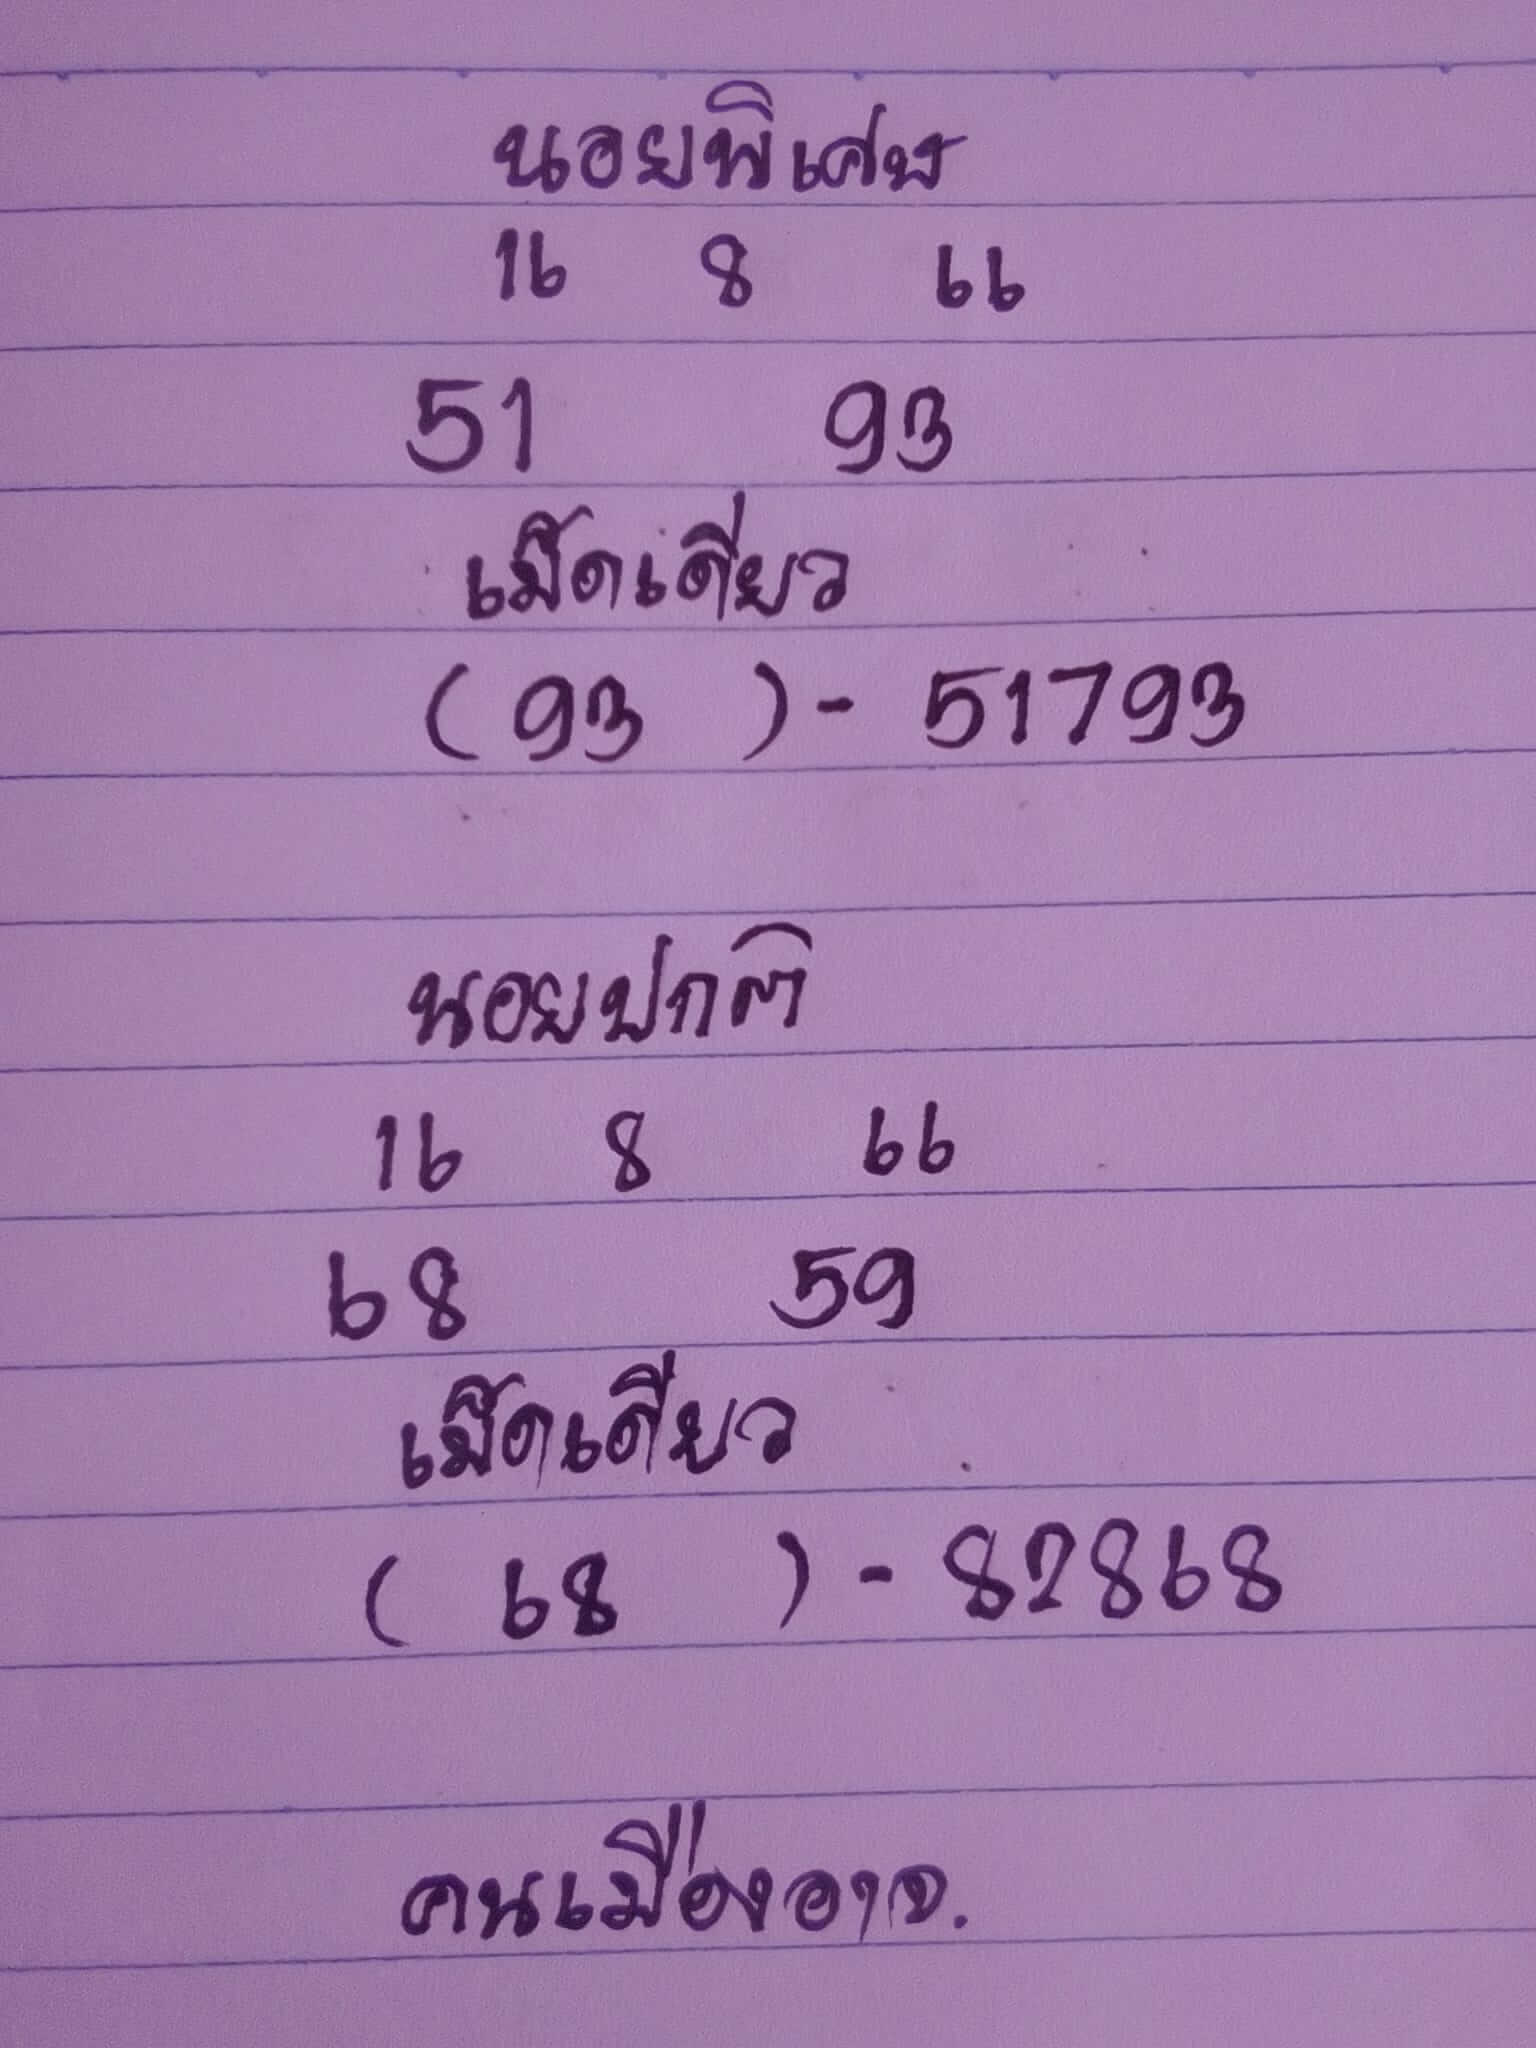 นอยพิเศษ
16 8 66
51 93
เม็ดเดียว
(93) - 51793
นอยปกติ
16 8 66
68 59
เม็ดเดียว
(68) - 82868
คนเมืองอาจ.